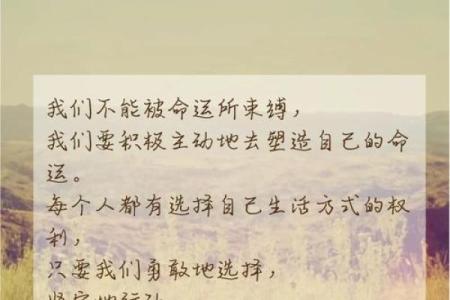 我们不能被命运所束缚，
我们要积极主动地去塑造自己的命
运。
每个人都有选择自己生活方式的权
利，
只要我们勇敢地选择，